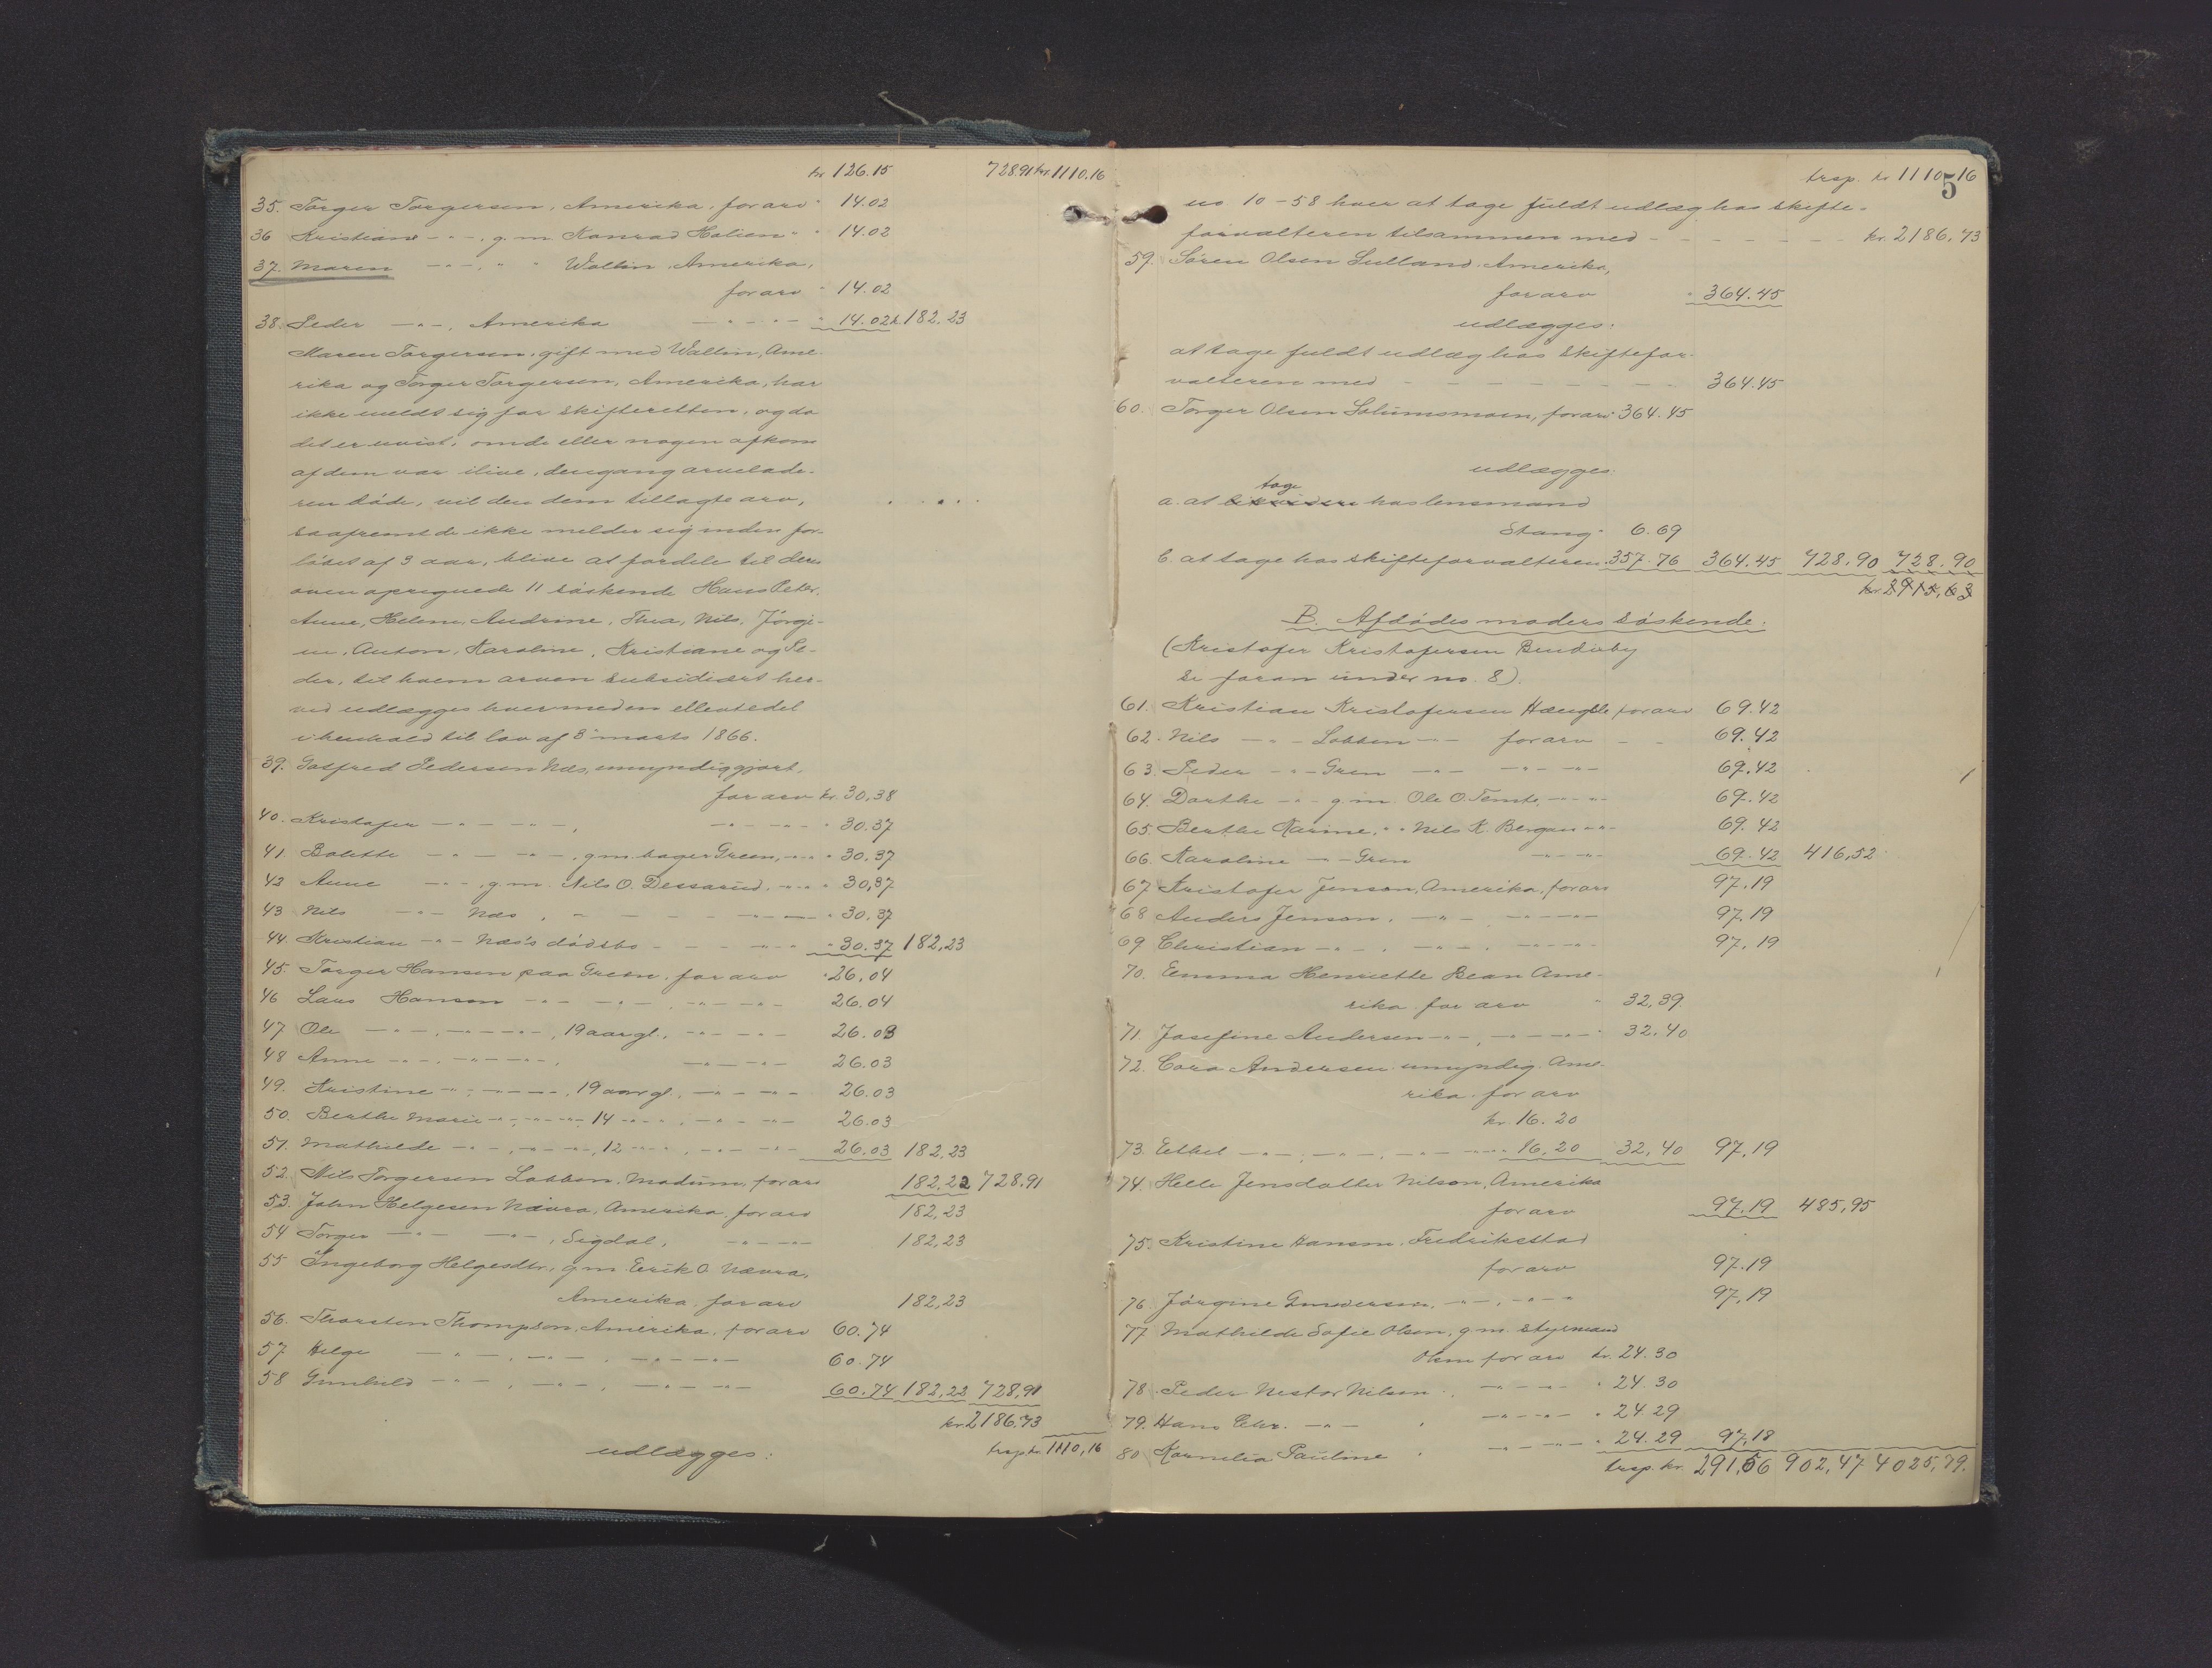 kr 126.15 728.91 kr. 1110.16
35. Torger Torgersen, Amerika, for arv " 14.02
36 Kristiane -"-, g.m. Konrad Holien " " 14.02
37. Maren -"-, " " Wallin, Amerika,
for arv " 14.02
38. Peder -"-, Amerika -"- -"- " 14.02 k. 182.23
Maren Torgersen, gift med Wallin, Ame-
rika og Torger Torgersen, Amerika, har
ikke meldt sig for skifteretten, og da
det er uvist, om de eller nogen afkom
af dem var ilive, dengang arvelade-
ren døde, vil den dem tillagte arv,
saafremt de ikke melder sig inden for-
løbet af 3 aar, blive at fordele til deres
oven opregnede 11 søskende Hans Peter,
Anne, Helene, Andrine, Thea, Nils, Jørgi-
ne, Anton, Karoline, Kristiane og Pe-
der, til hvem arven subsidiært her-
ved udlægges hver med en ellevtedel
i henhold til lov af 3 marts 1866.
39. Gotfred Pedersen Næs, umyndiggjort,
for arv kr. 30,38
40. Kristofer -"- -"-, -"- -"- " 30.37
41. Bolette -"- -"-, g.m. bager Green, -"- " 30.37
42 Anne -"-, g.m. Nils O. Dessarud, -"- " 30,37
43 Nils -"- Næs, - - - -"- " 30.37
44. Kristian -"- Næs's dødsbo - - - -"- " 30.37 182,23
45. Torger Hansen paa Green, for arv " 26.04
46 Lars Hansen -"- -"- -"- -"- 26.04
47 Ole -"-, -"- -"-, 19 aar gl., -"- -"- 26.03
48 Anne -"-, -"- -"-, -"- -"- 26.03
49. Kristine -"-, -"- -"-, 19 aar gl., -"- -"- 26.03
50. Berthe Marie -"-, -"- -"-, 14 -"- -"-, -"- -"- 26.03
51. Mathilde -"-, -"- -"-, 12 -"- -"-, -"- -"- 26.03 182,23
52. Nils Torgersen Lobben, Modum, for arv 182,22 728.91
53. John Helgesen Nævra, Amerika, for arv 182,23
54 Torger -"- -"-, Sigdal, -"- -"- 182,23
55 Ingeborg Helgesdtr., g.m. Erik O. Nævra,
Amerika, for arv 182,23
56. Thorsten Thompson, Amerika, for arv 60.74
57 Helge -"-, -"-, -"- -"- 60.74
58 Gunhild -"-, -"-, -"- -"- 60.74 182,22 728,91
kr. 2186.73
udlægges: trsp. kr. 1110,16
trsp. kr 1110.16
5
no 10-58 hver at tage fuldt udlæg hos skifte-
forvalteren tilsammen med - - - - - - kr. 2186,73
59. Søren Olsen Sulland, Amerika,
for arv " 364.45
udlægges:
at tage fuldt udlæg hos skiftefor-
valteren med - - - - - - - 364.45
60. Torger Olsen Solumsmoen, for arv " 364.45
udlægges:
tage
a. at hos lensmand
Stang " 6.69
b. at tage hos skifteforvalteren " 357.76 364.45 728,90 728.90
kr. 2915,63
B. Afdødes moders søskende:
(Kristofer Kristofersen Bendixby
se foran under no. 8).
61. Kristian Kristofersen Hængsle for arv 69.42
62. Nils -"- Lobben -"- for arv - - 69.42
63. Peder -"- Gren -"- -"- -"- 69.42
64. Dorthe -"- g.m. Ole O. Temte, -"- -"- 69.42
65. Berthe Karine, " " Nils K. Bergan -"- 69.42
66. Karoline -"- Gren -"- -"- 69.42 416,52
67 Kristofer Jensen, Amerika, for arv 97.19
68 Anders Jensen, -"- -"- -"- 97.19
69 Christian -"-, -"-, -"- -"- 97.19
70. Emma Henriette Bean Ame-
rika for arv " 32,39.
71. Josefine Andersen -"-, -"- -"- " 32.40
72. Cora Andersen umyndig Ame-
rika for arv
kr. 16.20
73. Ethel -"-, -"-, -"- -"- " 16,20 32,40 97,19
74. Helle Jensdatter Nilsen, Amerika
for arv 97.19 485,95
75. Kristine Hansen, Fredrikstad
for arv 97.19
76. Jørgine Gundersen, -"-, -"- -"- 97,19
77 Mathilde Sofie Olsen, g.m. styrmand
Olsen for arv kr. 24.30
78. Peder Nestor Nilsen, -"- -"- " 24.30
79. Hans Chr. -"- , -"- -"- " 24.29
80 Kornelia Pauline , -"- -"- " 24.29 97,18
trsp. kr. 291,56 902,47 4025,79.